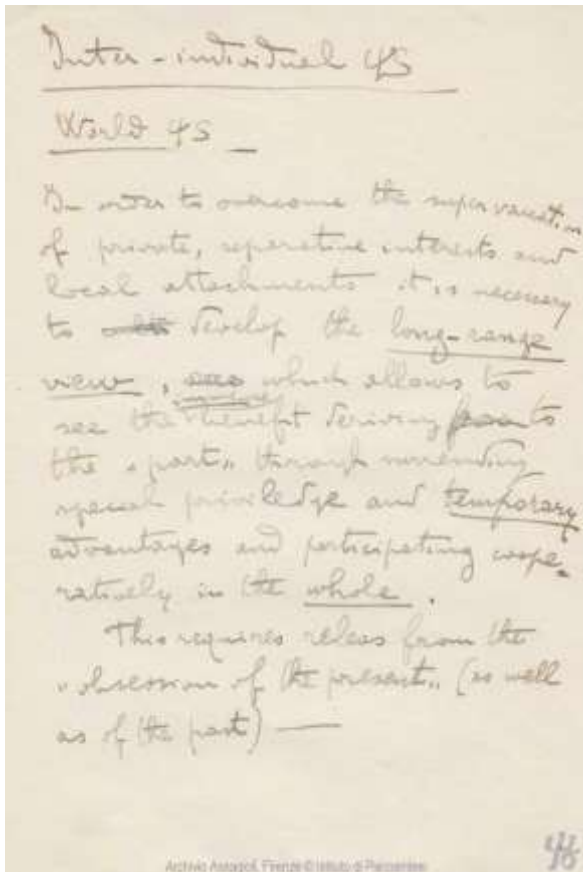 Inter-individual ΨS
World ΨS –
In order to overcome the supervaluation
of private, separative interests and
local attachments it is necessary
to develop the long-range
view, which allows to
see the benefit deriving to
the "part" through surrending
special priviledge and temporary
advantages and participating coope-
ratively in the whole.
This requires releas from the
"obsession of the present" (as well
as of the past) —
Archivio Assagioli, Firenze © Istituto di Psicosintesi